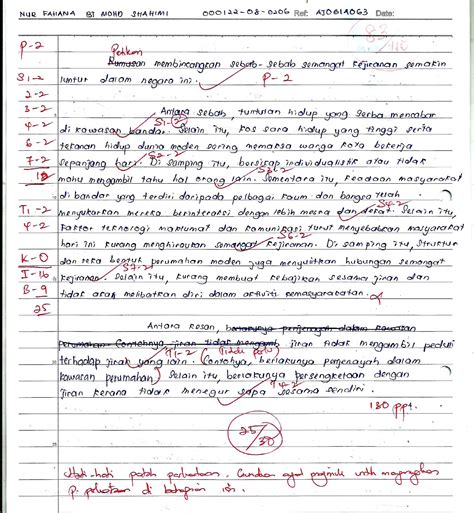 NUR FAHANA BT MOHD SHAHIMI 000122-08-0206 Ref: AJ061A063 Date:
83
P-2 Petikan
Rumusan membincangkan sebab-sebab semangat kejiranan semakin
S1-2 luntur dalam negara ini. P-2
2-2
3-2 Antara sebab, tuntutan hidup yang serba mencabar
4-2 di kawasan bandar. S1-2 Selain itu, kos sara hidup yang tinggi serta
6-2 tekanan hidup dunia moden sering memaksa warga kota bekerja
7-2 sepanjang hari. S2-2 Di samping itu, bersikap individualistik atau tidak
mahu mengambil tahu hal orang lain. S3-2 Sementara itu, keadaan masyarakat
di bandar yang terdiri daripada pelbagai kaum dan bangsa telah
T1-2 menyukarkan mereka berinteraksi dengan lebih mesra dan dekat. S4-2 Selain itu,
4-2 faktor teknologi maklumat dan komunikasi turut menyebabkan masyarakat
hari ini kurang menghiraukan semangat kejiranan. S6-2 Di samping itu, struktur
K-0 dan reka bentuk perumahan moden juga menyulitkan hubungan semangat
I-16 kejiranan. S7-2 Selain itu, kurang membuat kebajikan sesama jiran dan
B-9 tidak akan melibatkan diri dalam aktiviti kemasyarakatan.
25
Antara kesan, berlakunya penjenayah dalam kawasan
perumahan. Contohnya, jiran tidak mengamb jiran tidak mengambil peduli
terhadap jiran yang lain. T1-2 (Tidak perlu) Contohnya, berlakunya penjenayah dalam
kawasan perumahan. Selain itu, berlakunya persengketaan dengan
jiran kerana tidak menegur sapa sesama sendiri. T4-2
180 ppt.
25/30
Hati-hati patah perkataan. Gunakan
p. di bahagian isi.